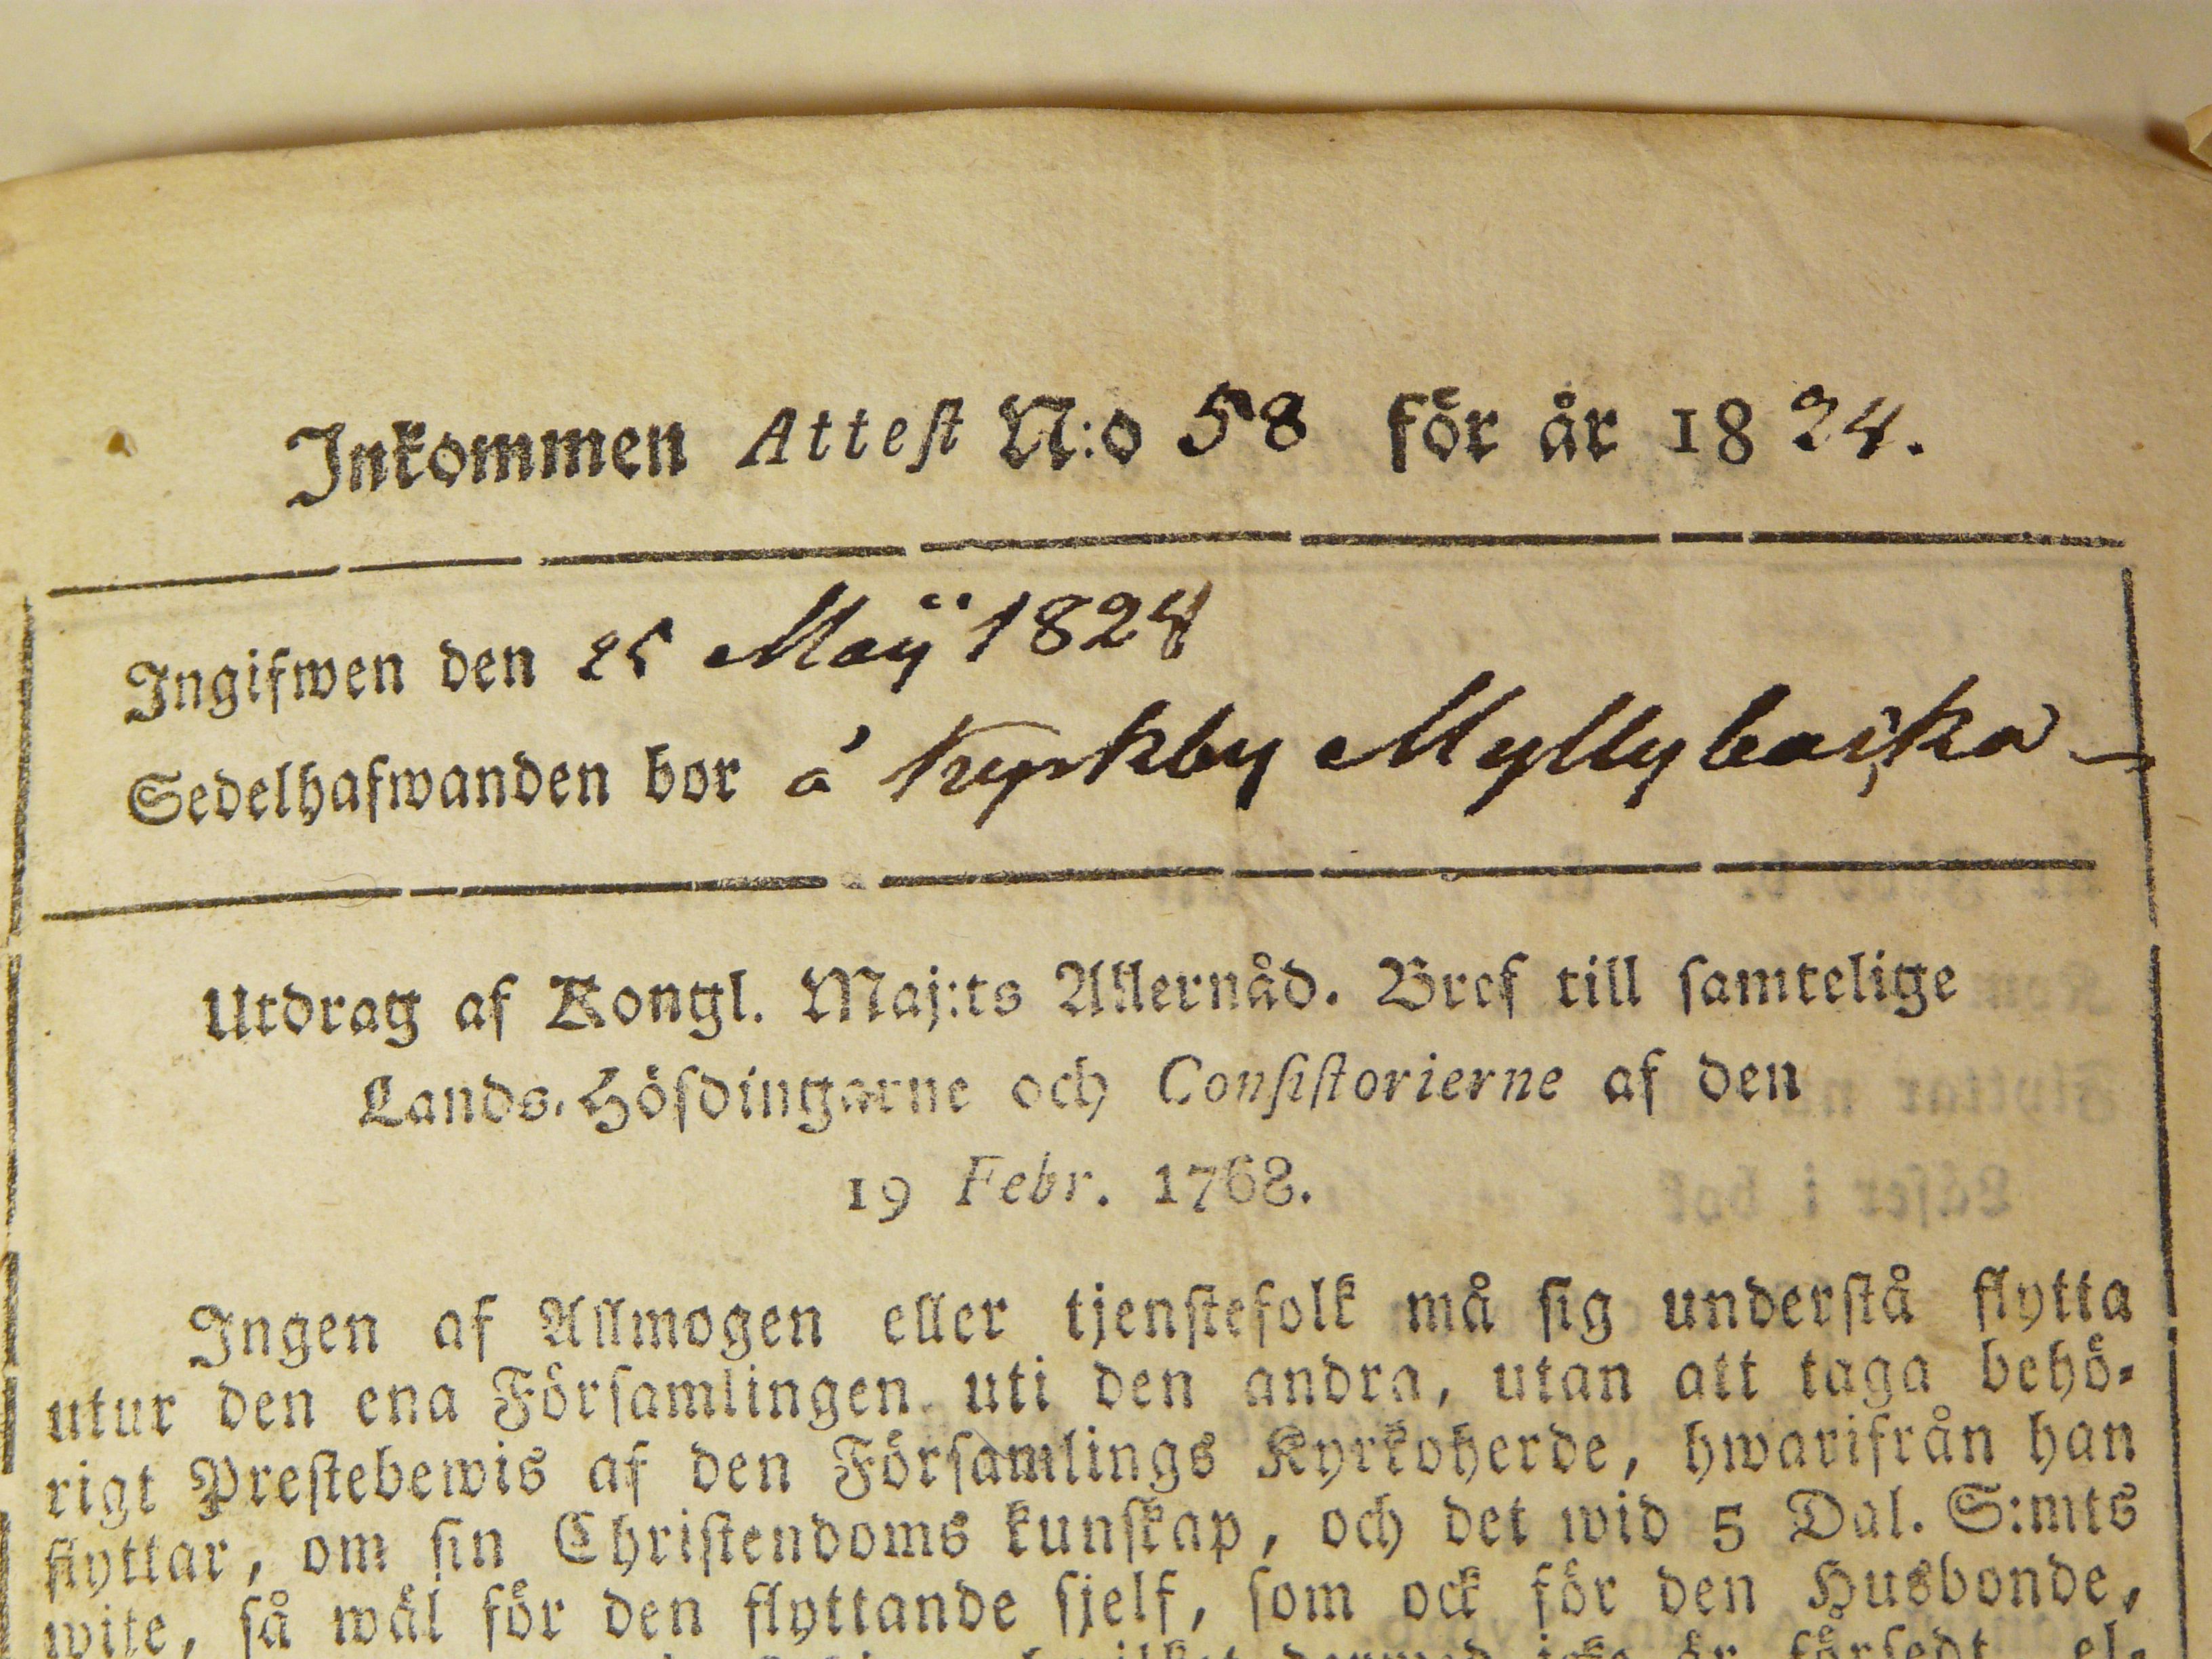 Inkommen Attest N:o 58 för år 1824.
Ingifwen den 25 Maÿ 1824
Sedelhafwanden bor å Kyrkby Myllybacka
Utdrag af Kongl. Maj:ts Allernåd. Bref till samtelige
Lands-Höfdingarne och Consistorierne af den
19 Febr. 1768.
Ingen af Allmogen eller tjenstefolk må sig understå flytta
utur den ena Församlingen uti den andra, utan att taga behö-
rigt Prestebewis af den Församlings Kyrkoherde, hwarifrån han
flyttar, om sin Christendoms kunskap, och det wid 5 Dal. S:mts
wite, så wäl för den flyttande sjelf, som ock för den Husbonde,